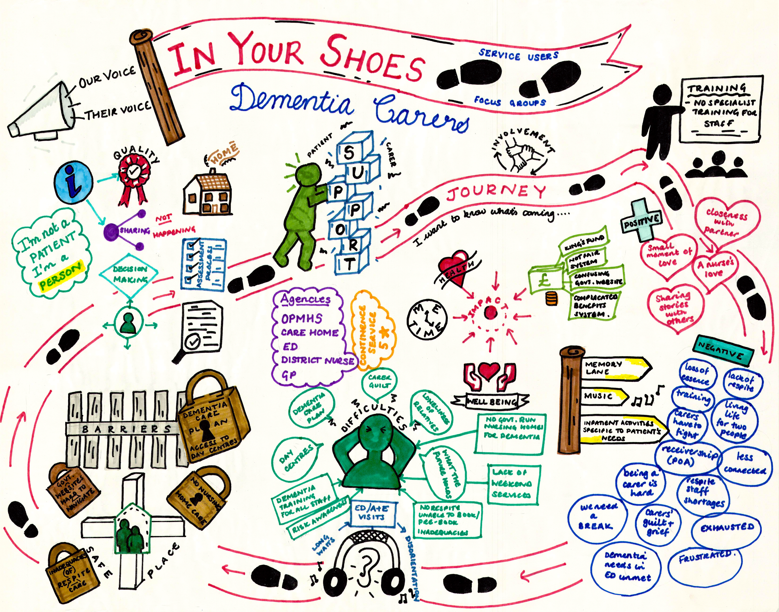 IN YOUR SHOES
SERVICE USERS
FOCUS GROUPS
Dementia Carers
OUR VOICE
THEIR VOICE
TRAINING
- NO SPECIALIST
TRAINING FOR
STAFF
QUALITY
HOME
SHARING
NOT
HAPPENING
I'm not a
PATIENT
I'm a
PERSON
DECISION
MAKING
ASSESSMENT
PATIENT
CARER
SUPPORT
INVOLVEMENT
JOURNEY
I want to know what's coming....
HEALTH
ME
TIME
IMPACT
£
KING'S FUND
NOT FAIR
SYSTEM
CONFUSING
GOVT. WEBSITE
COMPLICATED
BENEFITS
SYSTEM.
POSITIVE
closeness
with
partner
Small
moment of
love
A nurse's
love
Sharing
stories
with
others
Agencies
OPMHS
CARE HOME
ED
DISTRICT NURSE
GP
CONTINENCE
SERVICE
5☆
WELL BEING
MEMORY
LANE
MUSIC
INPATIENT ACTIVITIES
SPECIFIC TO PATIENT'S
NEEDS
NEGATIVE
loss of
essence
lack of
respite
training
living
life
for two
people
carers
have to
fight
receivership
(POA)
less
connected
being a
carer is
hard
respite
staff
shortages
WE NEED
A BREAK
carers'
guilt +
grief
EXHAUSTED
Dementia
needs in
ED unmet
FRUSTRATED.
BARRIERS
DEMENTIA
CARE
PLAN
ACCESS TO
DAY CENTRES
GOVT.
WEBSITES
HARD TO
NAVIGATE
NO NURSING
HOME CARE
INADEQUATE
(OF)
RESPITE
CARE
SAFE
PLACE
DIFFICULTIES
CARER
GUILT
DEMENTIA
CARE PLAN
LONELINESS
OF
RELATIVES
DAY
CENTRES
WHAT THE
FUTURE HOLDS
NO GOVT. RUN
NURSING HOMES
FOR DEMENTIA
LACK OF
WEEKEND
SERVICES
DEMENTIA
TRAINING
FOR ALL STAFF
RISK AWARENESS
NO RESPITE
UNABLE TO BOOK/
PRE-BOOK
INADEQUACIES
ED/A+E
VISITS
LONG WAITS
DISORIENTATION
?